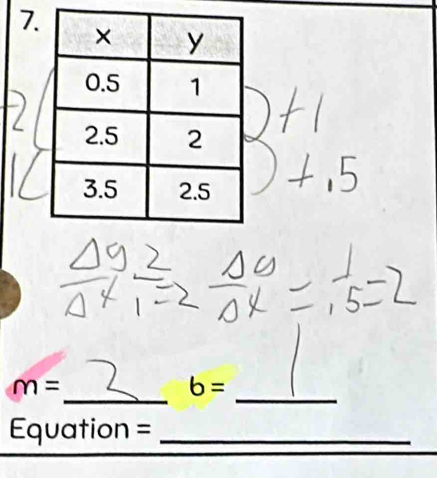 7.
x y
0.5 1
2 2.5 2 +1
1 3.5 2.5 +.5
Δy/Δx 2/1=2 Δy/Δx = 1/.5=2
m = 2 b = 1
Equation =